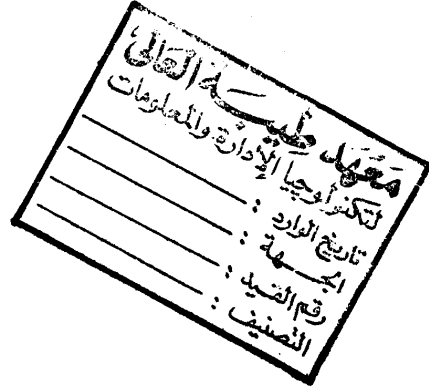 معهد طيبة العالى
لتكنولوجيا الإدارة والمعلومات
تاريخ الوارد :
الجهة :
رقم القيد :
التصنيف :